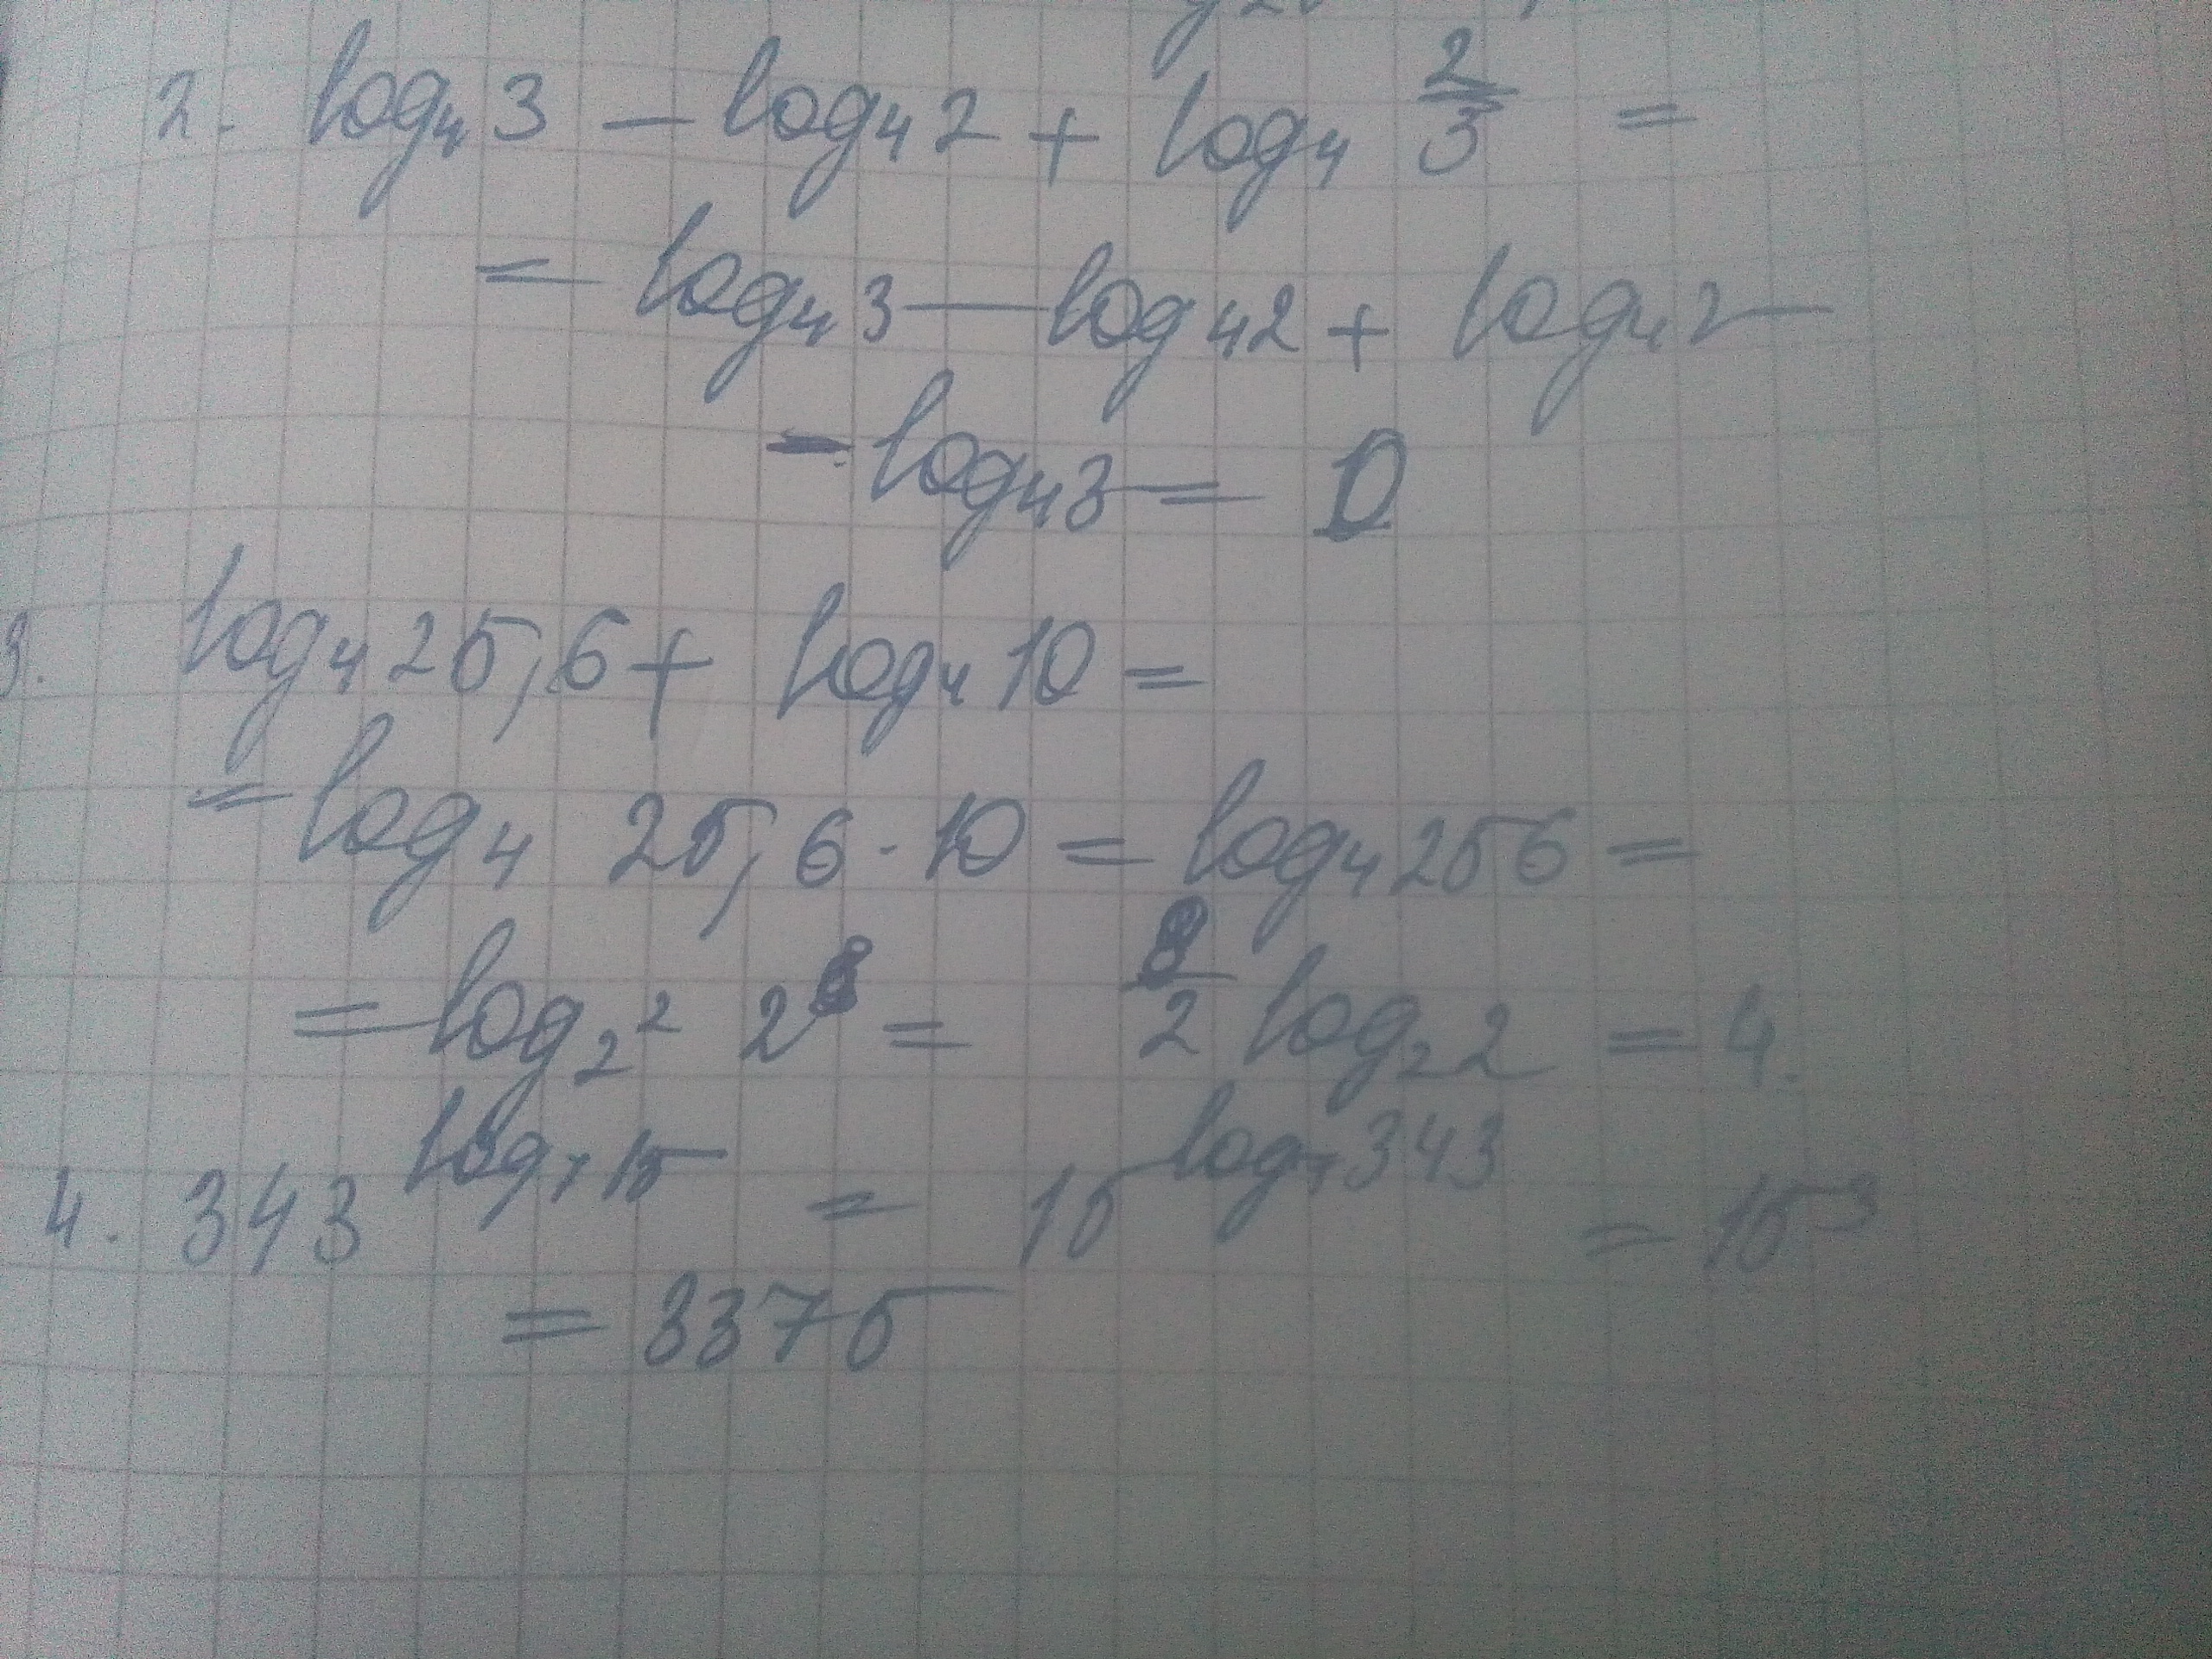 2. log₄ 3 − log₄ 2 + log₄ 2/3 =
= log₄ 3 − log₄ 2 + log₄ 2 −
− log₄ 3 = 0
3. log₄ 25,6 + log₄ 10 =
= log₄ 25,6 · 10 = log₄ 256 =
= log₂² 2⁸ = 8/2 log₂ 2 = 4.
4. 343^log₇ 15 = 15^log₇ 343 = 15³
= 3375